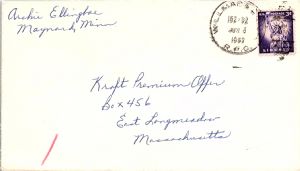 Archie Ellingboe
Maynard, Minn
WILLMAR &
JAN 6
R.P.O.
Kraft Premium Offer
Box 456
East Longmeadow
Massachusetts